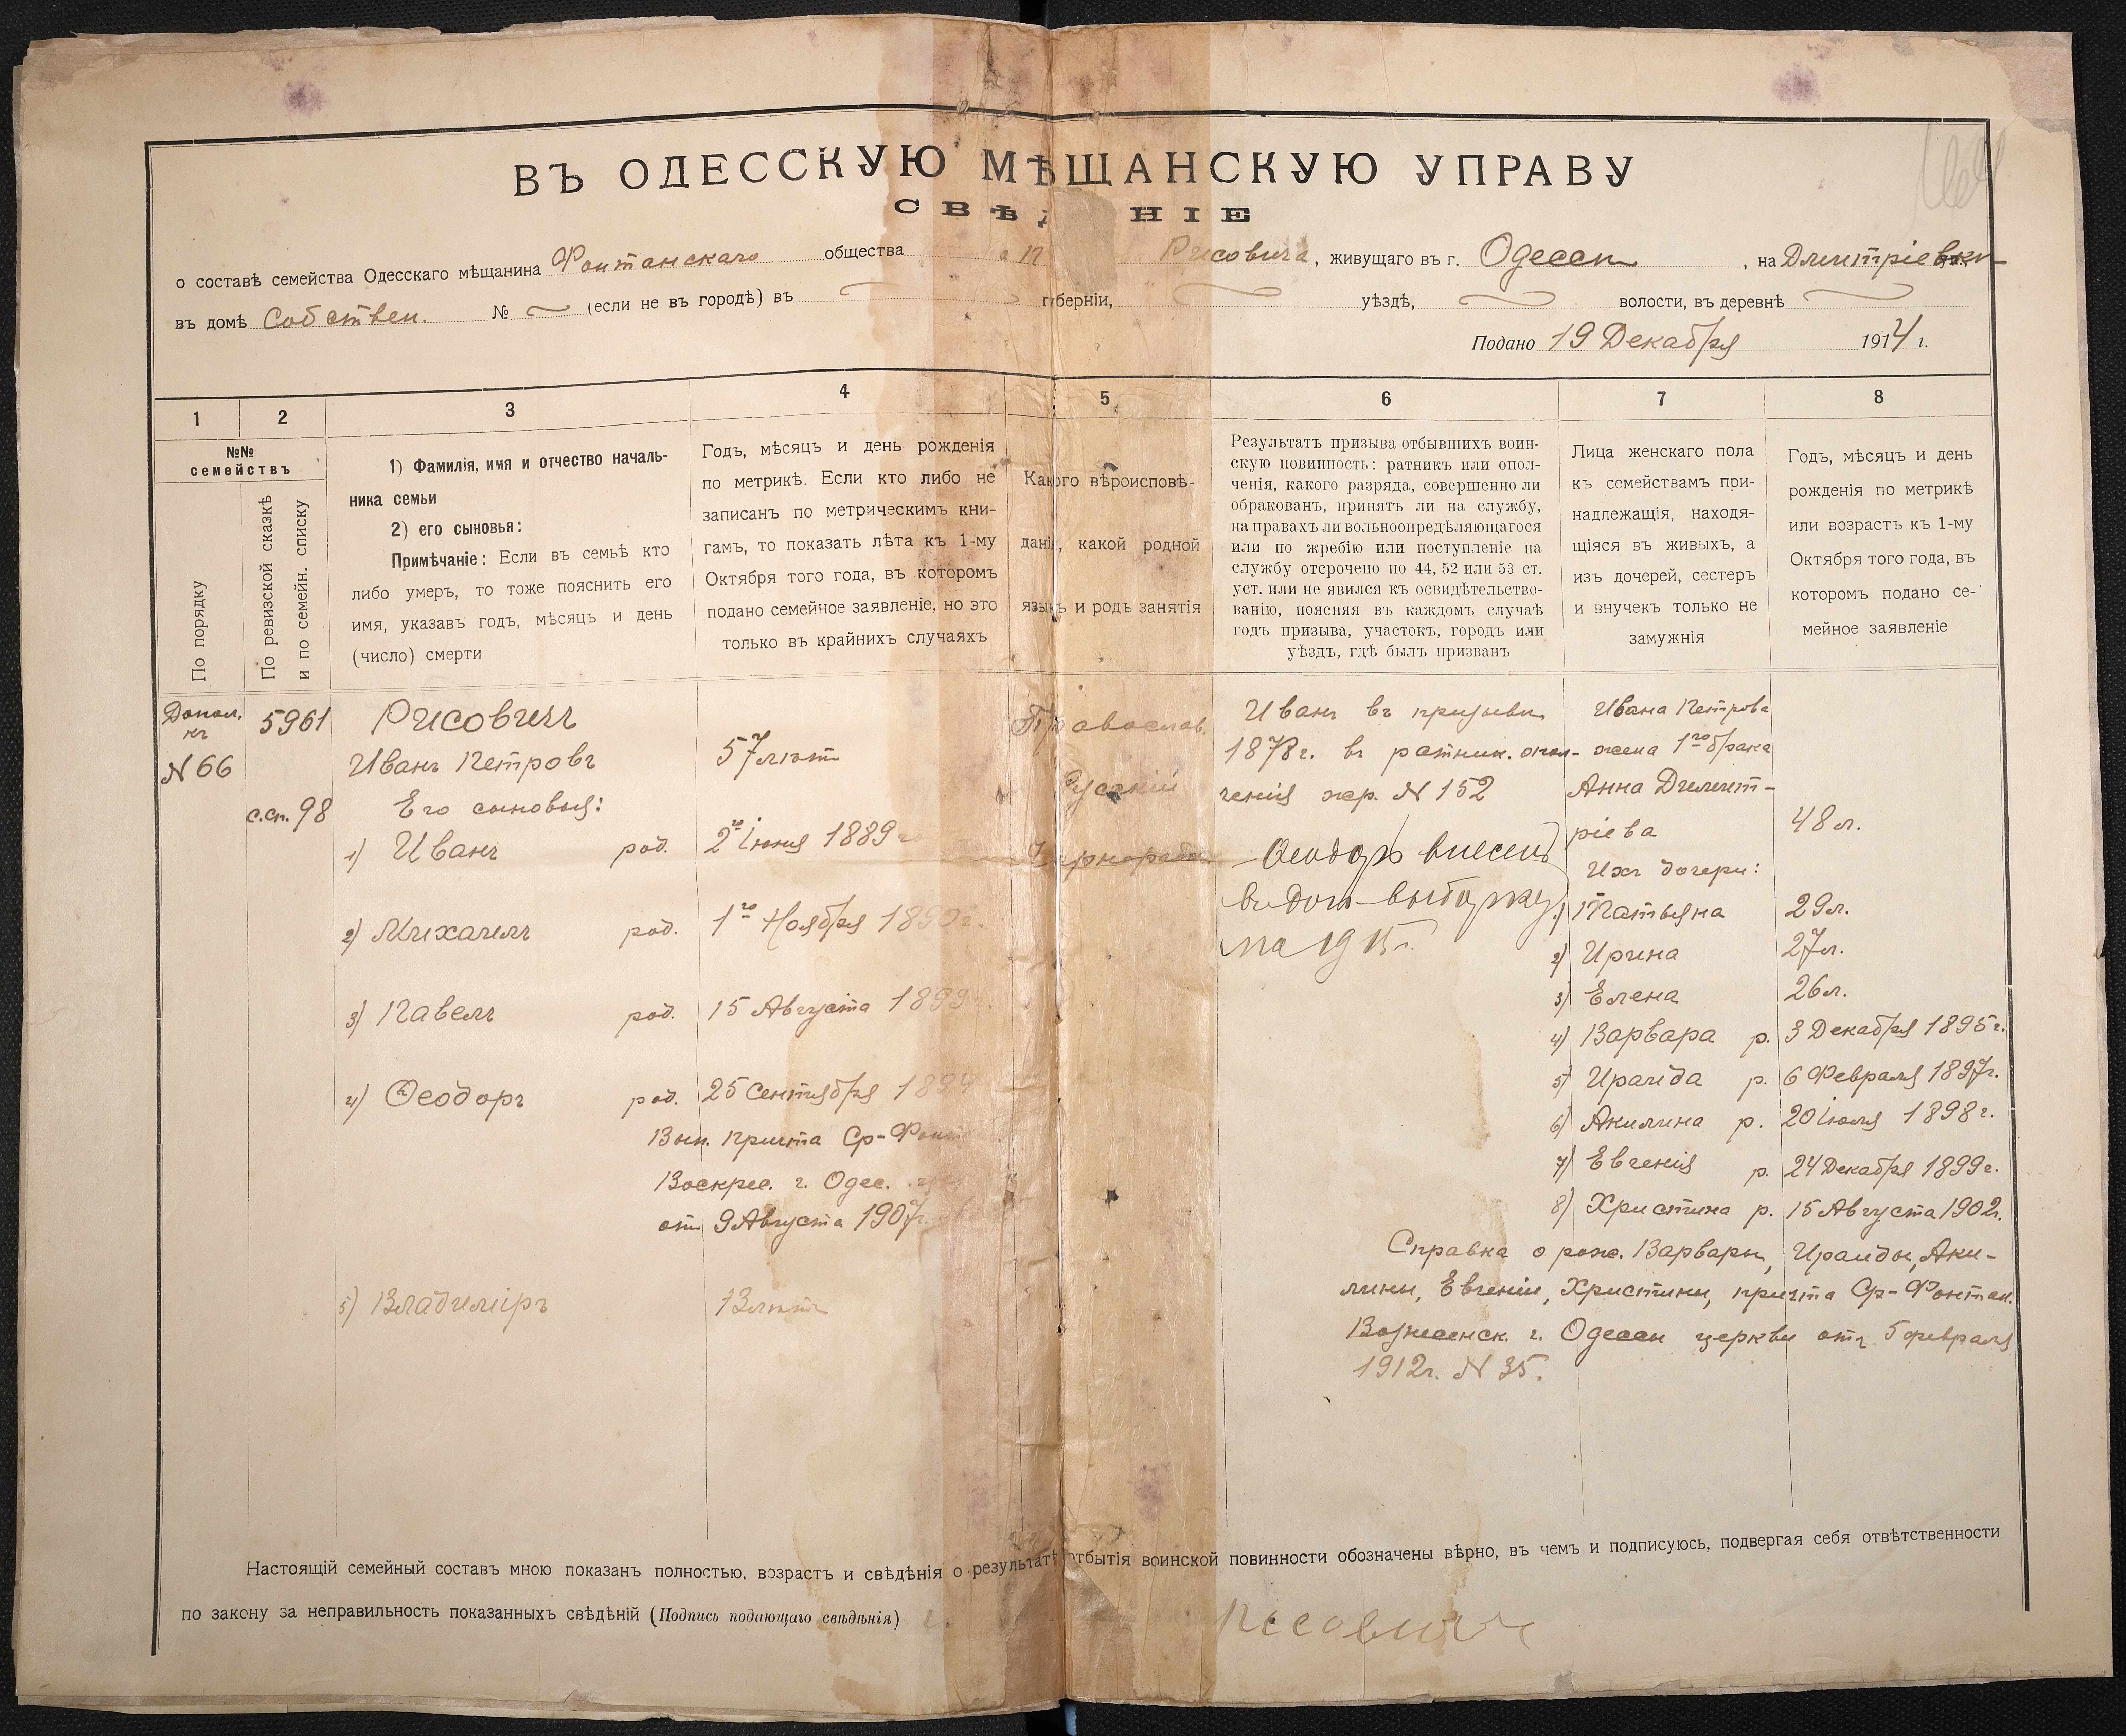 ВЪ ОДЕССКУЮ МѢЩАНСКУЮ УПРАВУ
СВѢД НІЕ
о составѣ семейства Одесскаго мѣщанина Фонтанскаго общества Рисовича, живущаго въ г. Одессы, на Дмитріевки
въ домѣ Собствен. № (если не въ городѣ) въ губерніи, уѣздѣ, волости, въ деревнѣ
Подано 19 Декабря 1914 г.
1 2 3 4 5 6 7 8
№№ семействъ
По порядку
По ревизской сказкѣ и по семейн. списку
1) Фамилія, имя и отчество началь-
ника семьи
2) его сыновья:
Примѣчаніе: Если въ семьѣ кто
либо умеръ, то тоже пояснить его
имя, указавъ годъ, мѣсяцъ и день
(число) смерти
Годъ, мѣсяцъ и день рожденія
по метрикѣ. Если кто либо не
записанъ по метрическимъ кни-
гамъ, то показать лѣта къ 1-му
Октября того года, въ которомъ
подано семейное заявленіе, но это
только въ крайнихъ случаяхъ
Какого вѣроисповѣ-
данія, какой родной
языкъ и родъ занятія
Результатъ призыва отбывшихъ воин-
скую повинность: ратникъ или опол-
ченія, какого разряда, совершенно ли
обракованъ, принятъ ли на службу,
на правахъ ли вольноопредѣляющагося
или по жребію или поступленіе на
службу отсрочено по 44, 52 или 53 ст.
уст. или не явился къ освидѣтельство-
ванію, поясняя въ каждомъ случаѣ
годъ призыва, участокъ, городъ или
уѣздъ, гдѣ былъ призванъ
Лица женскаго пола
къ семействамъ при-
надлежащія, находя-
щіяся въ живыхъ, а
изъ дочерей, сестеръ
и внучекъ только не
замужнія
Годъ, мѣсяцъ и день
рожденія по метрикѣ
или возрастъ къ 1-му
Октября того года, въ
которомъ подано се-
мейное заявленіе
Допол.
къ
N 66
5961
с.сп. 98
Рисовичъ
Иванъ Петровъ 57 лѣтъ
Его сыновья:
1) Иванъ род. 2го Іюня 1889
2) Михаилъ род. 1го Ноября 1890г.
3) Павелъ род. 15 Августа 1893
4) Ѳеодоръ род. 25 Сентября 1894
Вып. причта Ср-Фонт
Воскрес. г. Одес.
отъ 9 Августа 1907г.
5) Владиміръ 13 лѣтъ
Православ.
Русскій
Чернораб.
Иванъ въ призывъ
1878г. въ ратник. опол-
ченія жер. N 152
Ѳеодоръ внесенъ
въ доп. выборку
на 1915г.
Ивана Петрова
жена 1го брака
Анна Димит-
ріева 48 л.
Ихъ дочери:
1) Татьяна 29 л.
2) Ирина 27 л.
3) Елена 26 л.
4) Варвара р. 3 Декабря 1895г.
5) Ираида р. 6 Февраля 1897г.
6) Акилина р. 20 Іюля 1898г.
7) Евгенія р. 24 Декабря 1899г.
8) Христина р. 15 Августа 1902г.
Справка о рож. Варвары, Ираиды, Аки-
лины, Евгеніи, Христины, причта Ср-Фонтан.
Вознесенск. г. Одессы церкви отъ 5 февраля
1912г. N 35.
Настоящій семейный составъ мною показанъ полностью, возрастъ и свѣдѣнія о результатѣ отбытія воинской повинности обозначены вѣрно, въ чемъ и подписуюсь, подвергая себя отвѣтственности
по закону за неправильность показанныхъ свѣдѣній (Подпись подающаго свѣдѣнія) Рисовичъ